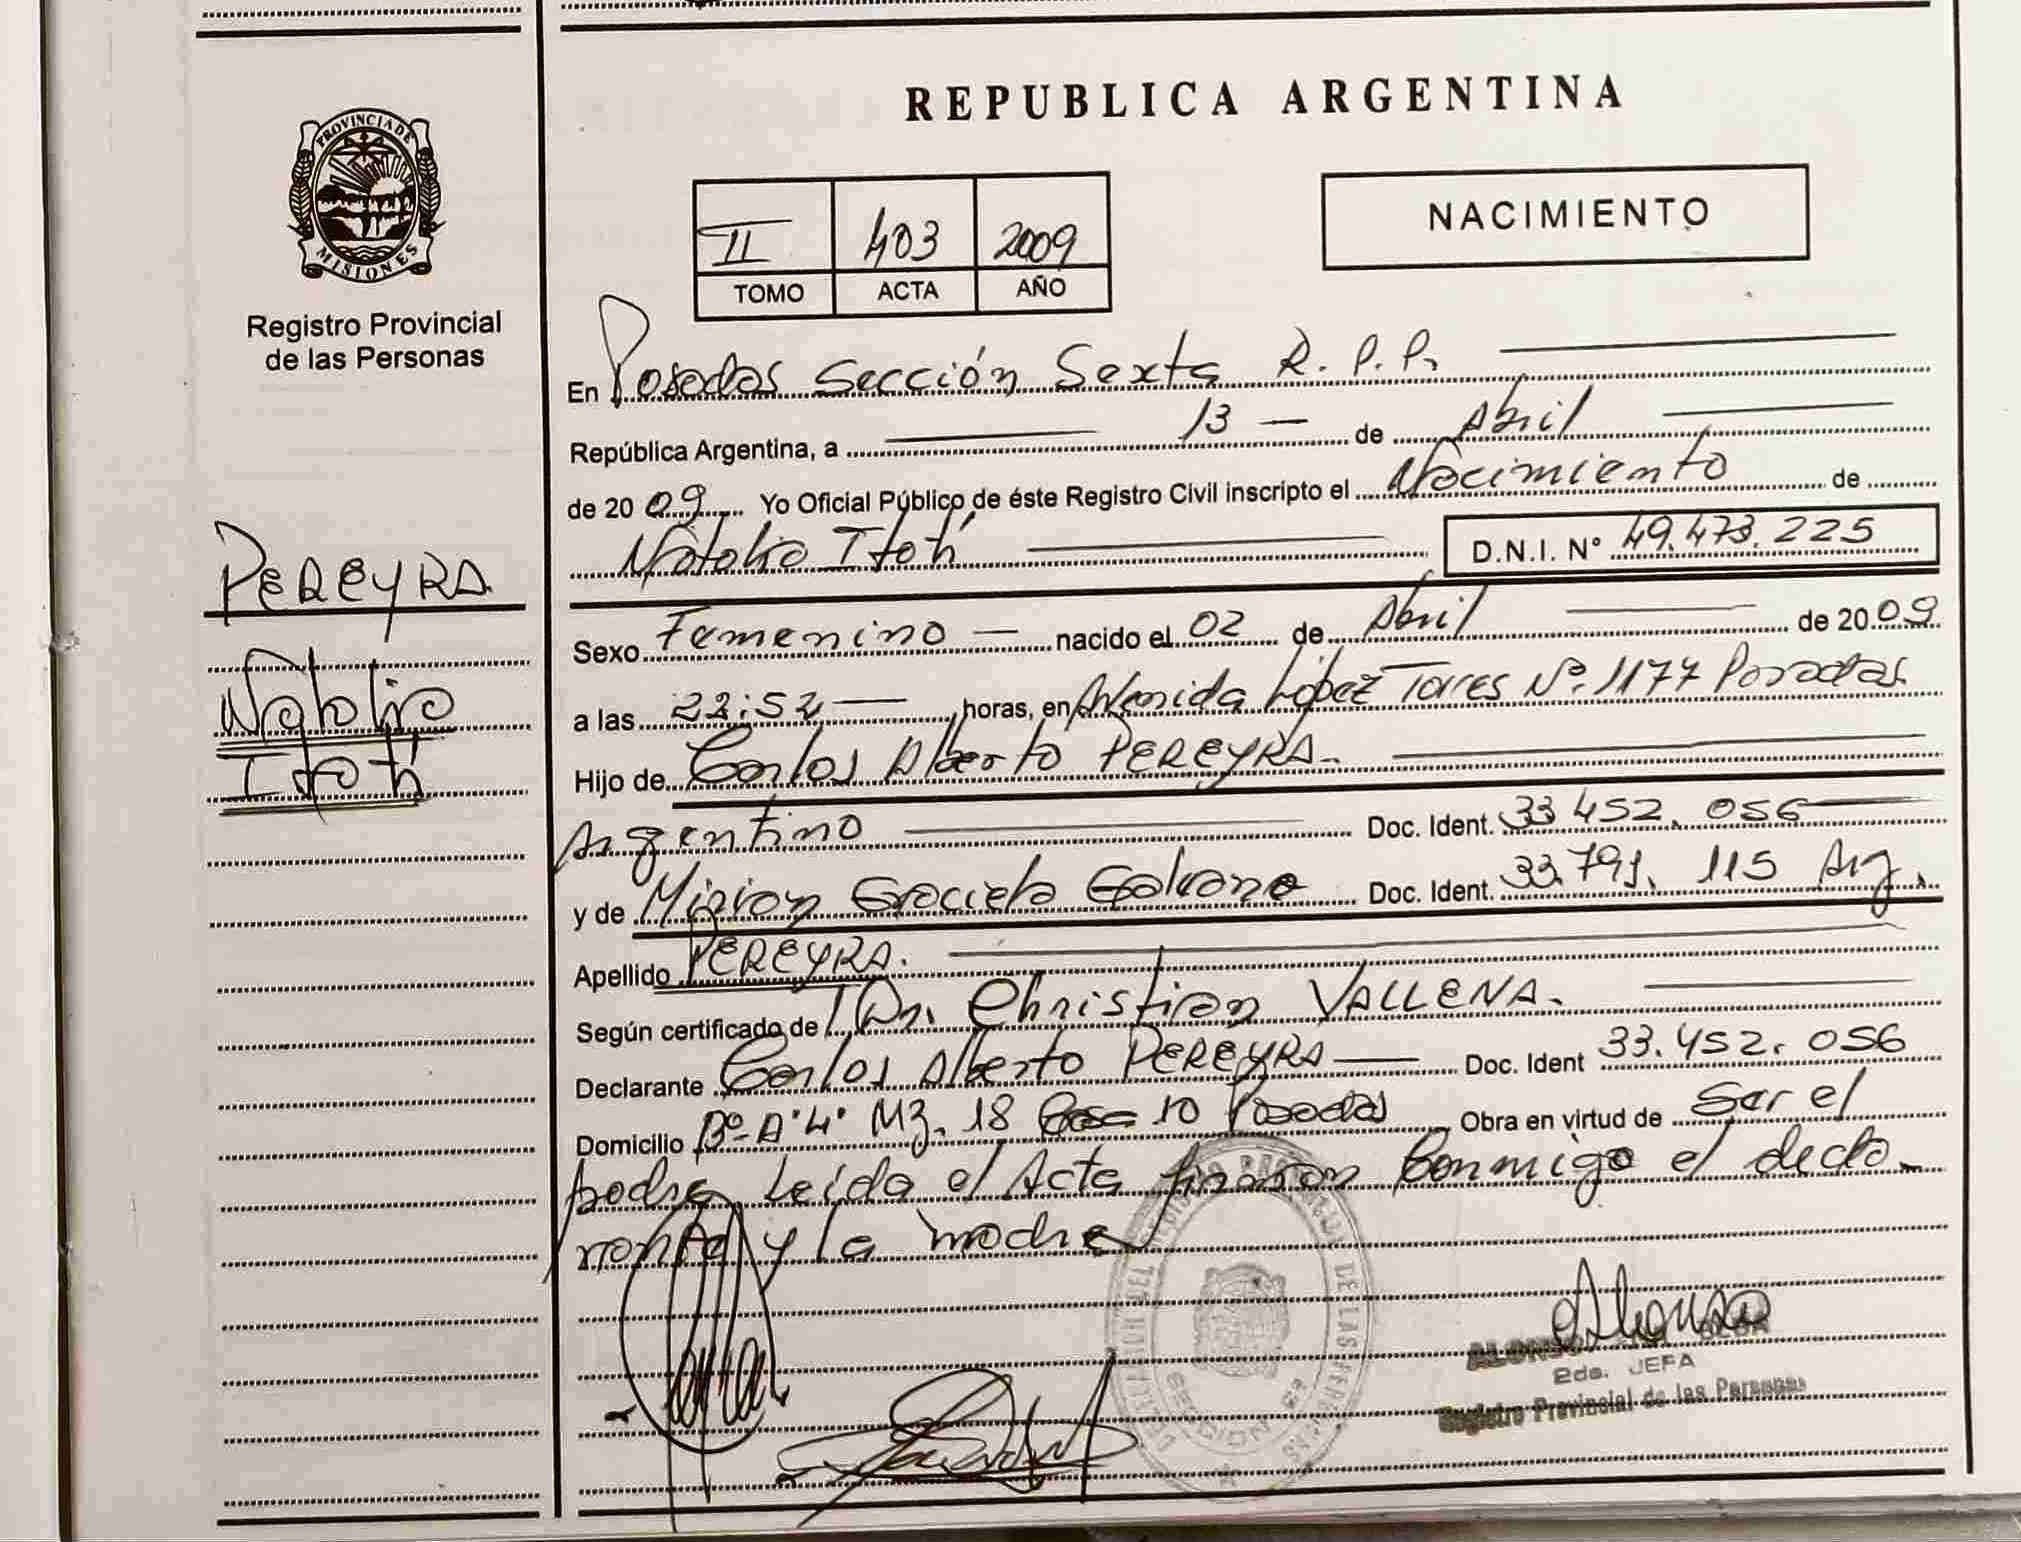 REPUBLICA ARGENTINA
PROVINCIA DE
MISIONES
Registro Provincial
de las Personas
II 403 2009
TOMO ACTA AÑO
NACIMIENTO
En Posadas Sección Sexta R. P. P.
República Argentina, a 13 de Abril
de 2009 Yo Oficial Público de éste Registro Civil inscripto el Nacimiento de
Natalia Itatí D.N.I. N° 49.473.225
PEREYRA
Natalia
Itatí
Sexo Femenino nacido el 02 de Abril de 2009
a las 22:52 horas, en Avenida López Torres Nº. 1177 Posadas
Hijo de Carlos Alberto PEREYRA.
Argentino Doc. Ident. 33 452. 056
y de Mirian Graciela Galeano Doc. Ident. 33.791. 115 Arg.
Apellido PEREYRA.
Según certificado de Dr. Christian VALLENA.
Declarante Carlos Alberto PEREYRA Doc. Ident 33.452. 056
Domicilio Bº A 4 Mz. 18 Casa 10 Posadas Obra en virtud de Ser el
padre Leída el Acta firman Conmigo el decla-
rante y la madre
DE LAS
SECCION
Alonso
ALONSO
2da. JEFA
Registro Provincial de las Personas